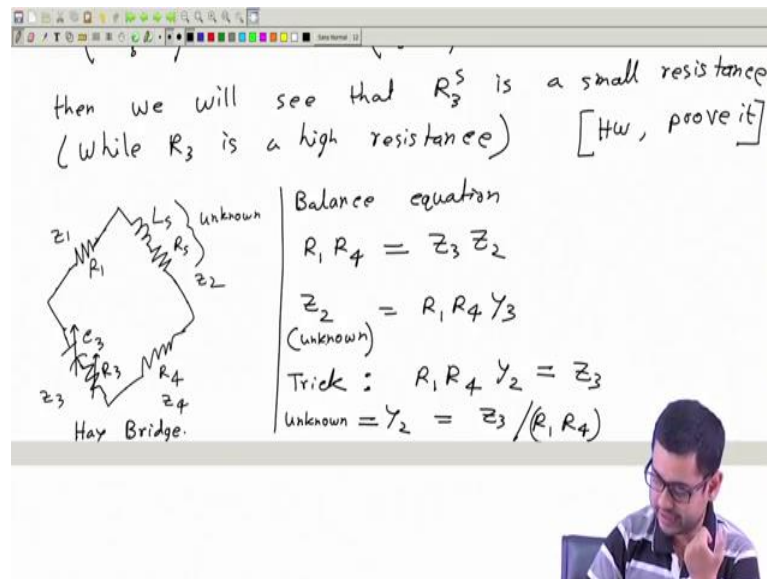 then we will see that R₃ˢ is a small resistance
(while R₃ is a high resistance) [HW, prove it]
Z1
R₁
Ls
Rs
unknown
Z2
C3
R3
Z3
R4
Z4
Hay Bridge.
Balance equation
R₁ R₄ = Z₃ Z₂
Z₂ = R₁ R₄ Y₃
(unknown)
Trick : R₁ R₄ Y₂ = Z₃
unknown = Y₂ = Z₃ / (R₁ R₄)